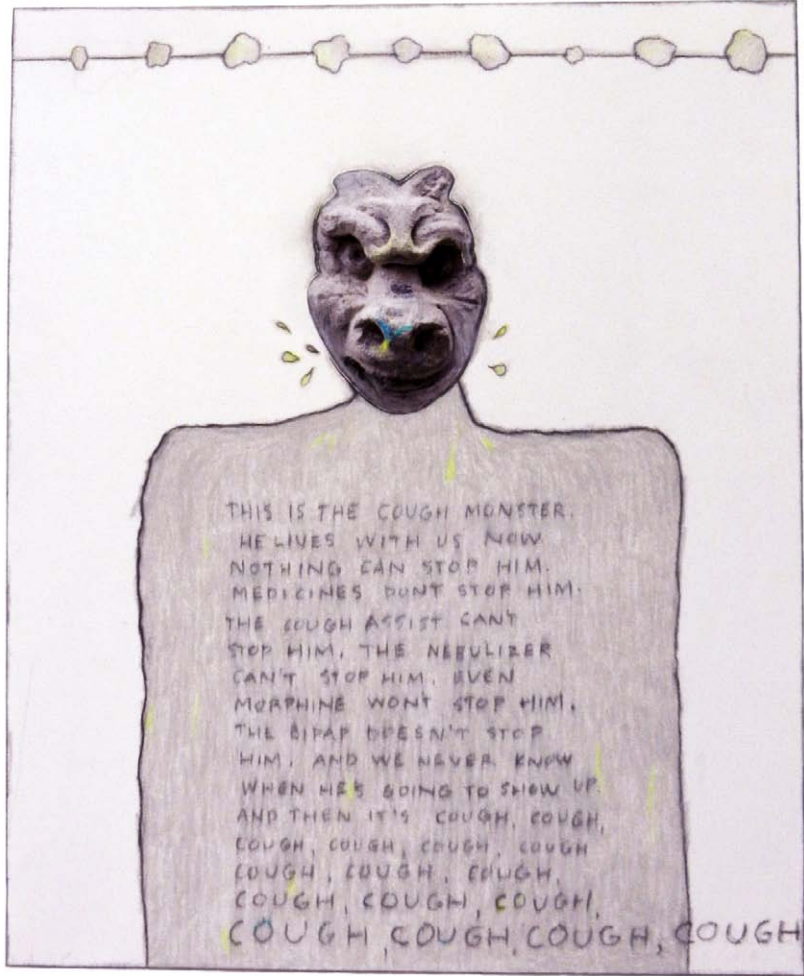 THIS IS THE COUGH MONSTER.
HE LIVES WITH US NOW.
NOTHING CAN STOP HIM.
MEDICINES DONT STOP HIM.
THE COUGH ASSIST CAN'T
STOP HIM. THE NEBULIZER
CAN'T STOP HIM. EVEN
MORPHINE WONT STOP HIM.
THE BIPAP DOESN'T STOP
HIM. AND WE NEVER KNOW
WHEN HE'S GOING TO SHOW UP.
AND THEN IT'S COUGH, COUGH,
COUGH, COUGH, COUGH, COUGH
COUGH, COUGH, COUGH,
COUGH, COUGH, COUGH,
COUGH, COUGH, COUGH, COUGH